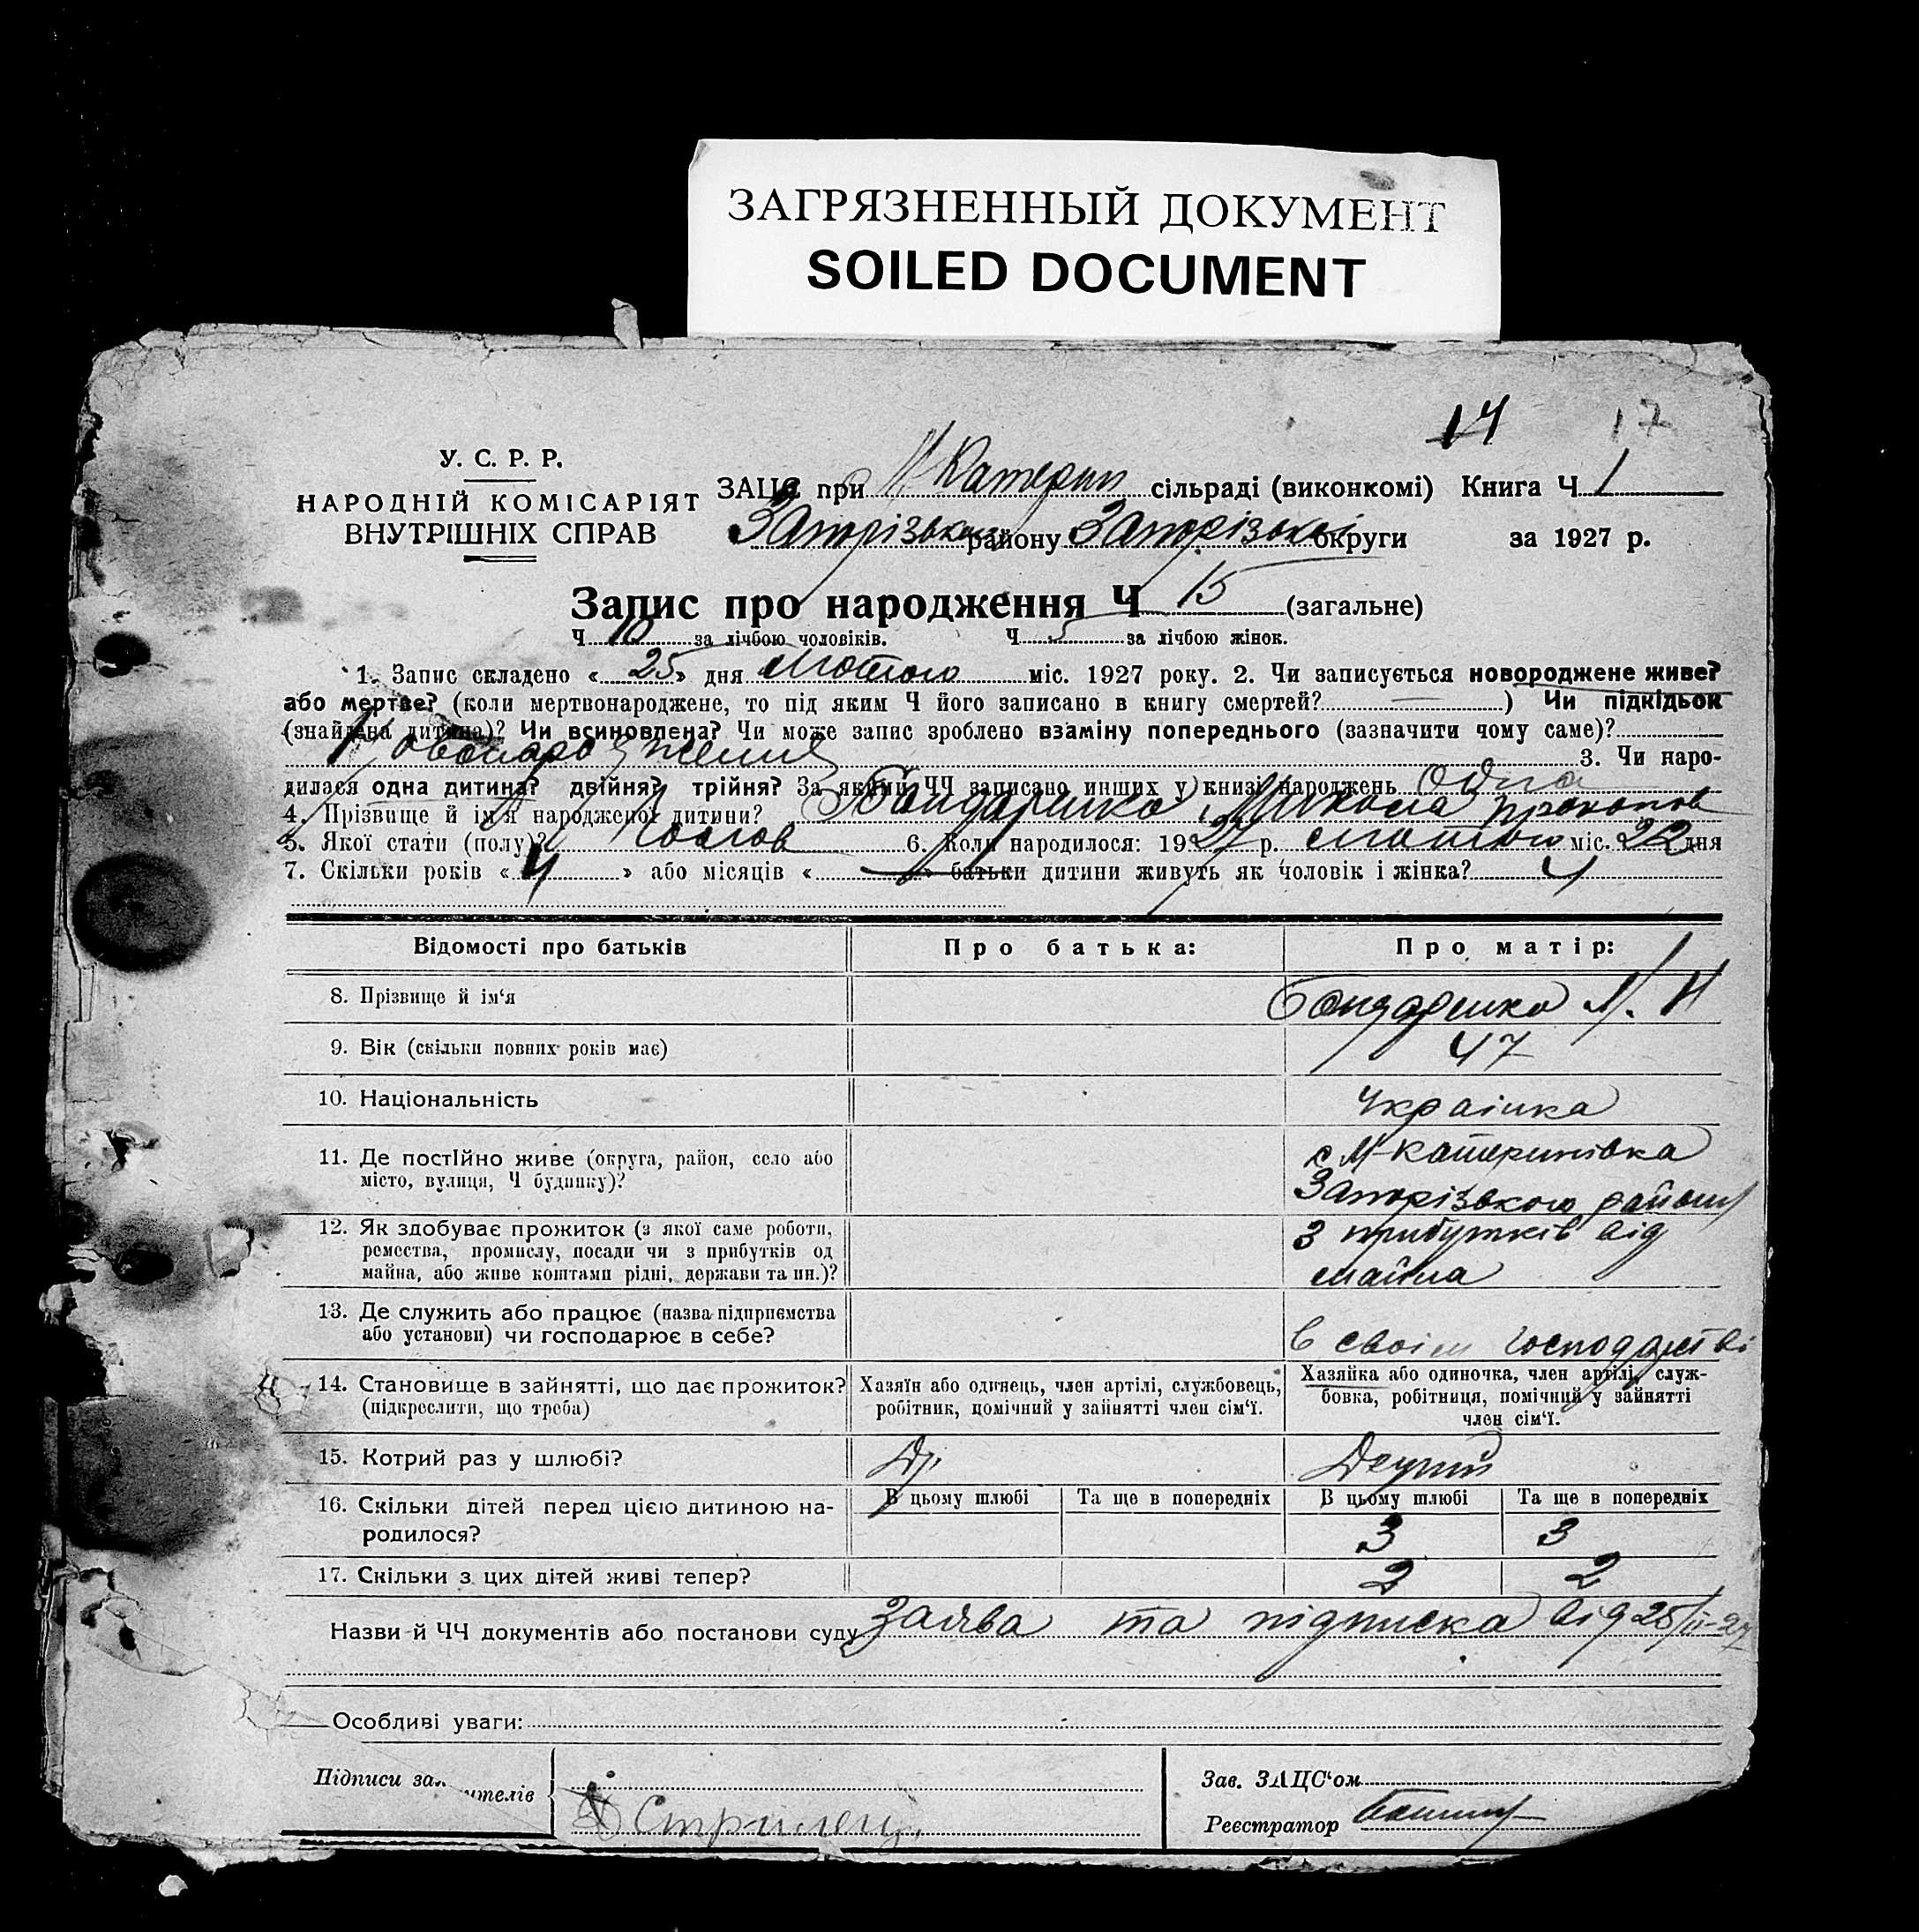 ЗАГРЯЗНЕННЫЙ ДОКУМЕНТ
SOILED DOCUMENT
14 17
У. С. Р. Р.
НАРОДНІЙ КОМІСАРІЯТ
ВНУТРІШНІХ СПРАВ
ЗАЦС при М Катерин сільраді (виконкомі) Книга Ч 1
Запорізьк району Запорізької округи за 1927 р.
Запис про народження Ч 15 (загальне)
Ч 10 за лічбою чоловіків. Ч 5 за лічбою жінок.
1. Запис складено « 25 » дня лютого міс. 1927 року. 2. Чи записується новороджене живе?
або мертве? (коли мертвонароджене, то під яким Ч його записано в книгу смертей? ) Чи підкідьок
(знайдена дитина)? Чи всиновлена? Чи може запис зроблено взаміну попереднього (зазначити чому саме)?
3. Чи наро-
дилася одна дитина? двійня? трійня? За якими ЧЧ записано инших у книзі народжень одна
4. Прізвище й ім'я народженої дитини? Бондаренко Микола Прокопов
5. Якої стати (полу)? 6. Коли народилося: 1927 р. лютого міс. 22 дня
7. Скільки років « 4 » або місяців « » батьки дитини живуть як чоловік і жінка? 4
Відомості про батьків Про батька: Про матір:
8. Прізвище й ім'я Бондаренко М. Н
9. Вік (скільки повних років має) 47
10. Національність Українка
11. Де постійно живе (округа, район, село або
місто, вулиця, Ч будинку)?
с М-Катеринівка
Запорізького району
12. Як здобуває прожиток (з якої саме роботи,
ремества, промислу, посади чи з прибутків од
майна, або живе коштами рідні, держави та ин.)?
З прибутків від
майна
13. Де служить або працює (назва підприємства
або установи) чи господарює в себе?
в своім господарстві
14. Становище в зайнятті, що дає прожиток?
(підкреслити, що треба)
Хазяїн або одинець, член артілі, службовець,
робітник, помічний у зайнятті член сім'ї.
Хазяйка або одиночка, член артілі, служ-
бовка, робітниця, помічний у зайнятті
член сім'ї.
15. Котрий раз у шлюбі? Др.
16. Скільки дітей перед цією дитиною на-
родилося?
В цьому шлюбі Та ще в попередніх В цьому шлюбі Та ще в попередніх
3 3
17. Скільки з цих дітей живі тепер? 2 2
Назви й ЧЧ документів або постанови суду Заява та підписка від 25/II-27
Особливі уваги:
Підписи за ителів
Стрилец
Зав. ЗАЦС'ом
Реєстратор